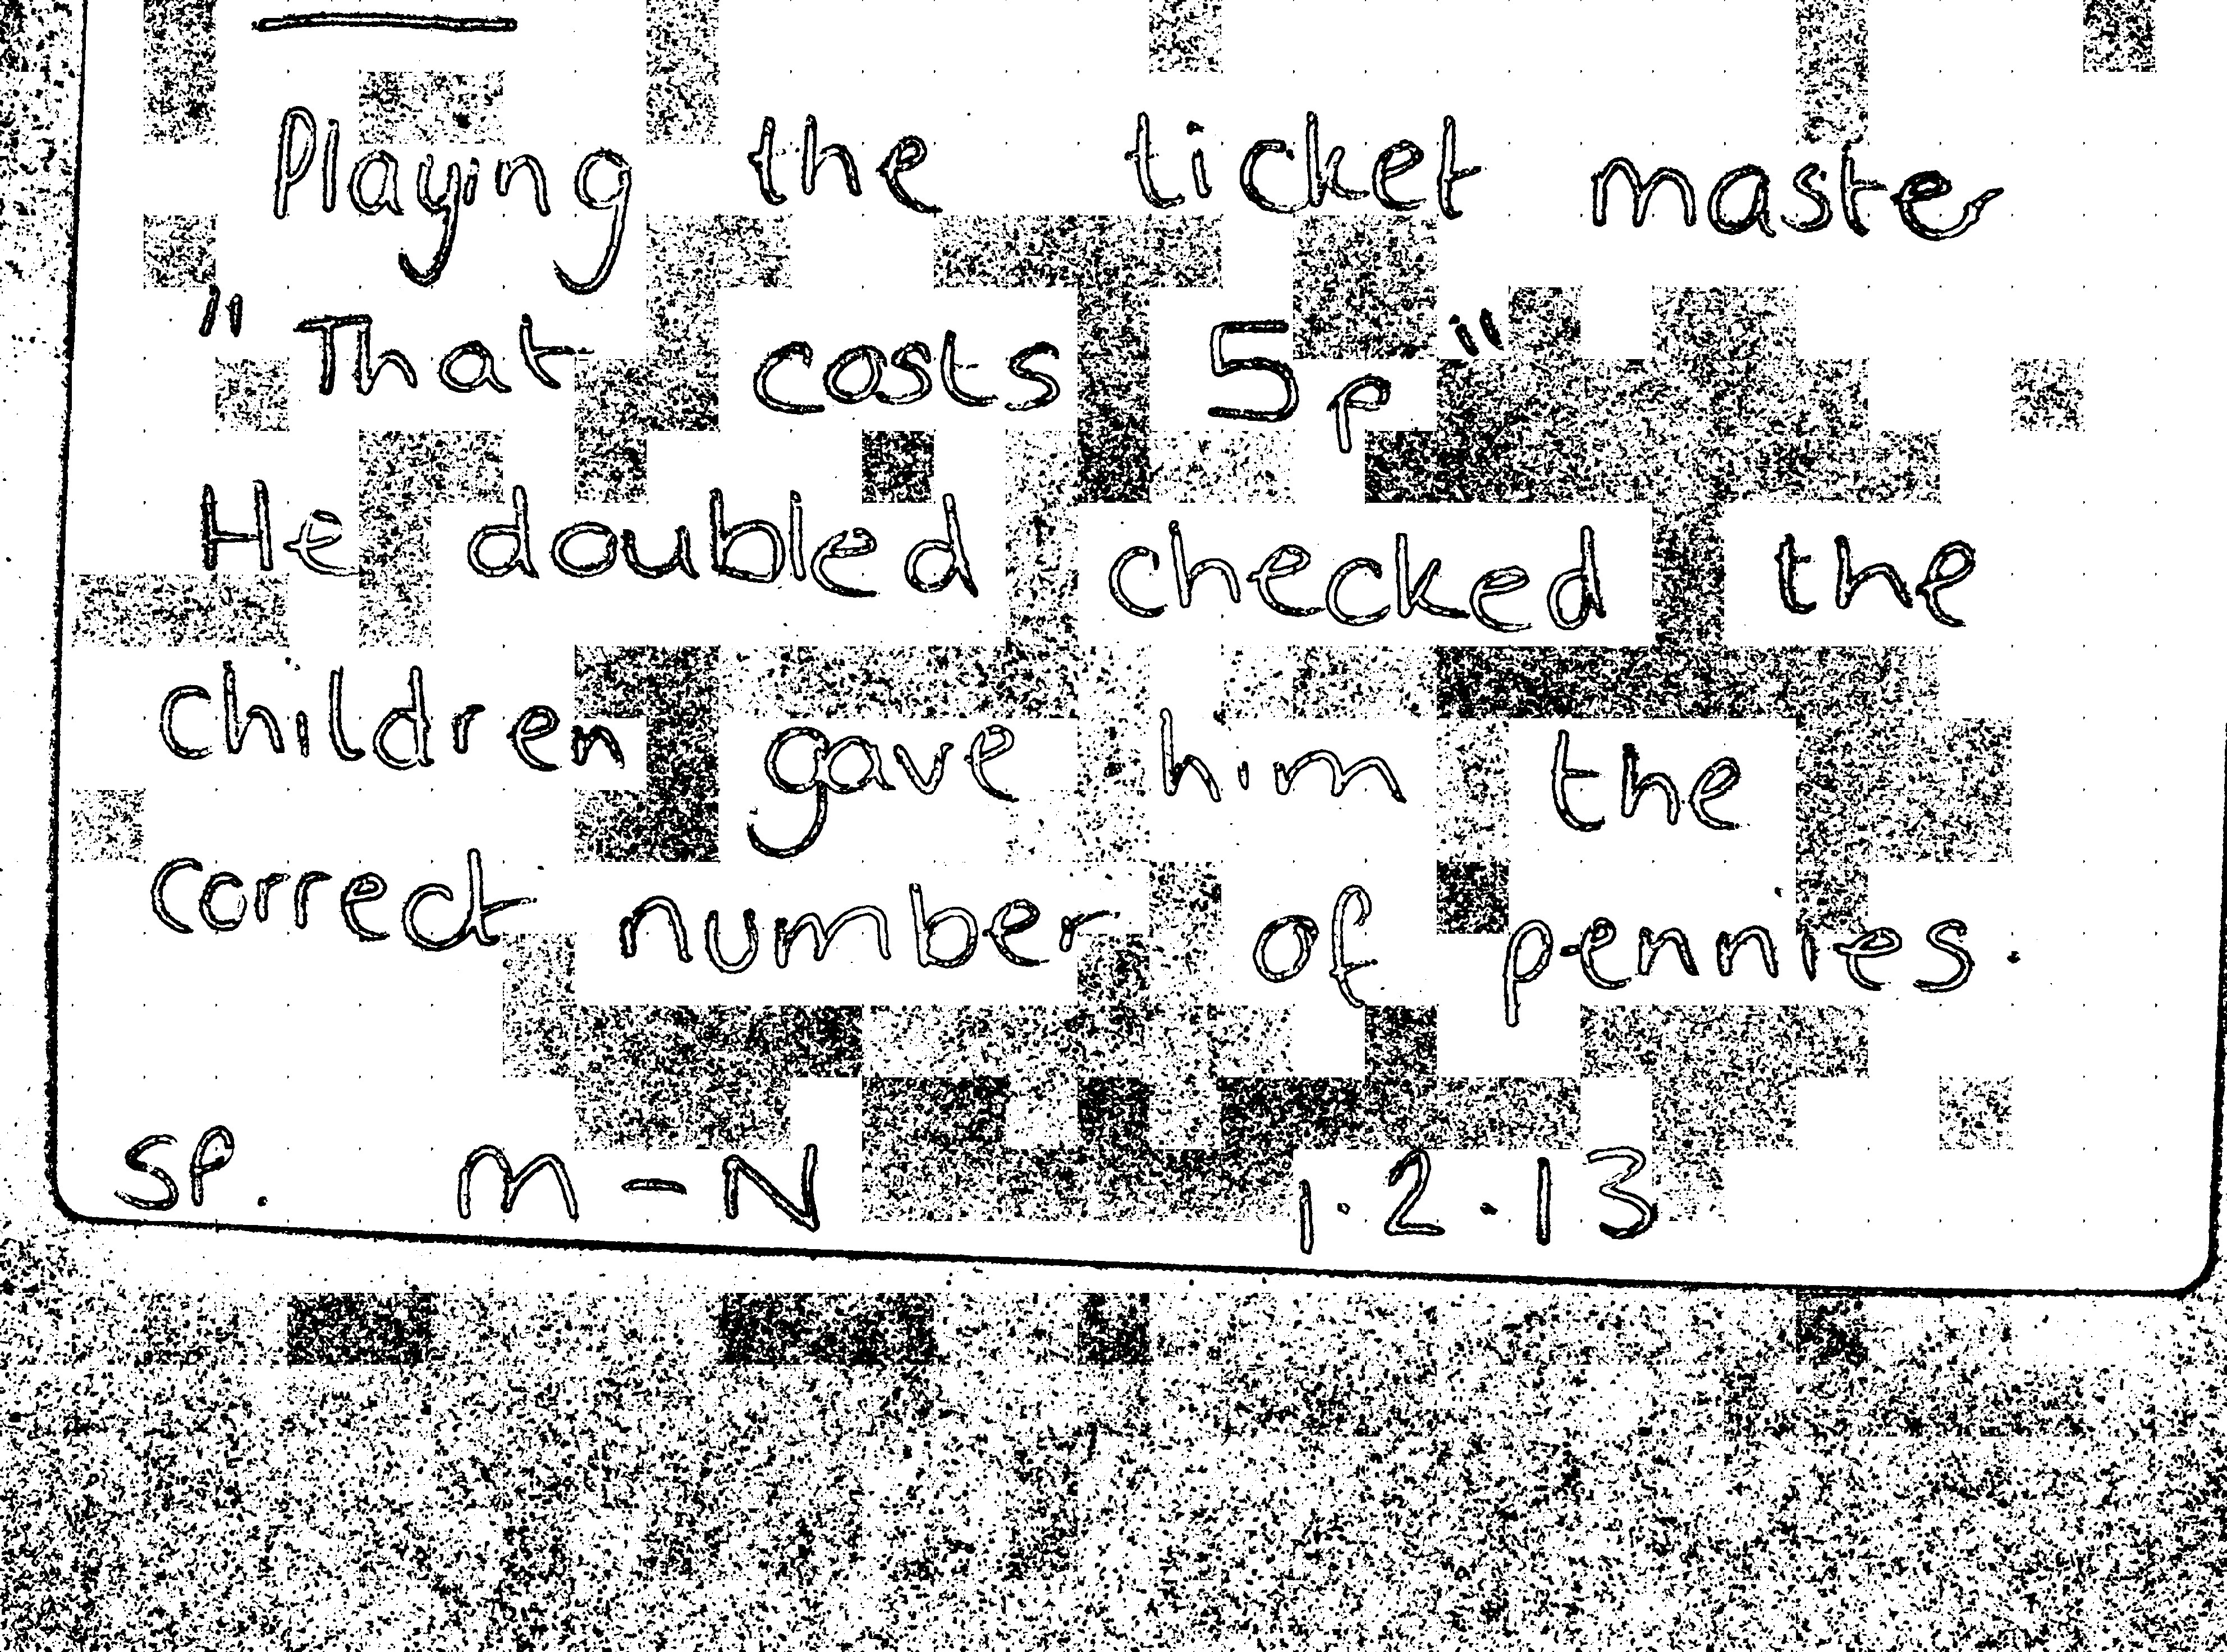 Playing the ticket master
"That costs 5p"
He doubled checked the
children gave him the
correct number of pennies.
SP. M-N 1.2.13